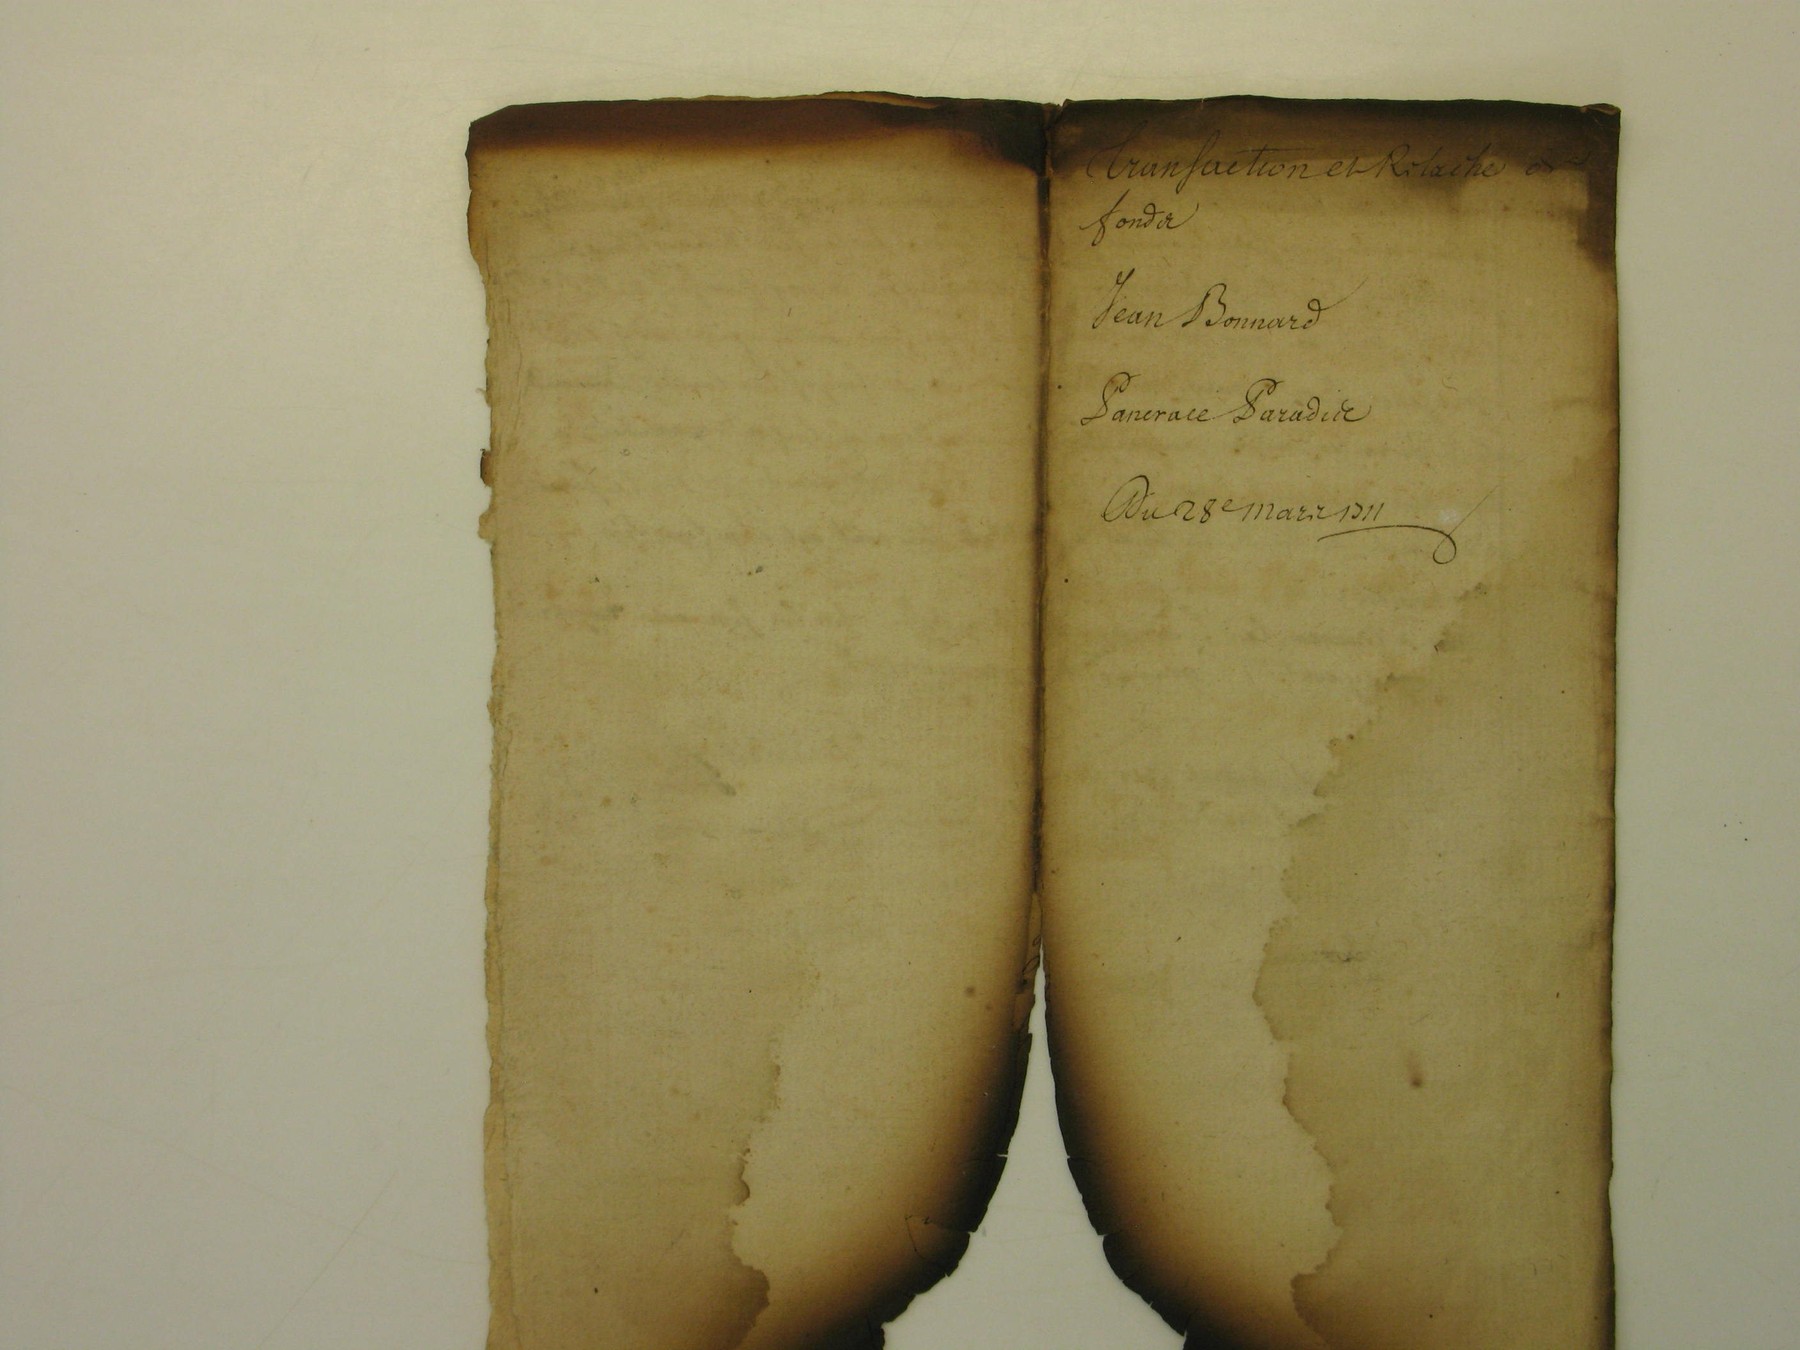 Transaction et Relache de
fondz
Jean Bonnard
Pancrace Paradiz
Du 28e marz 1711